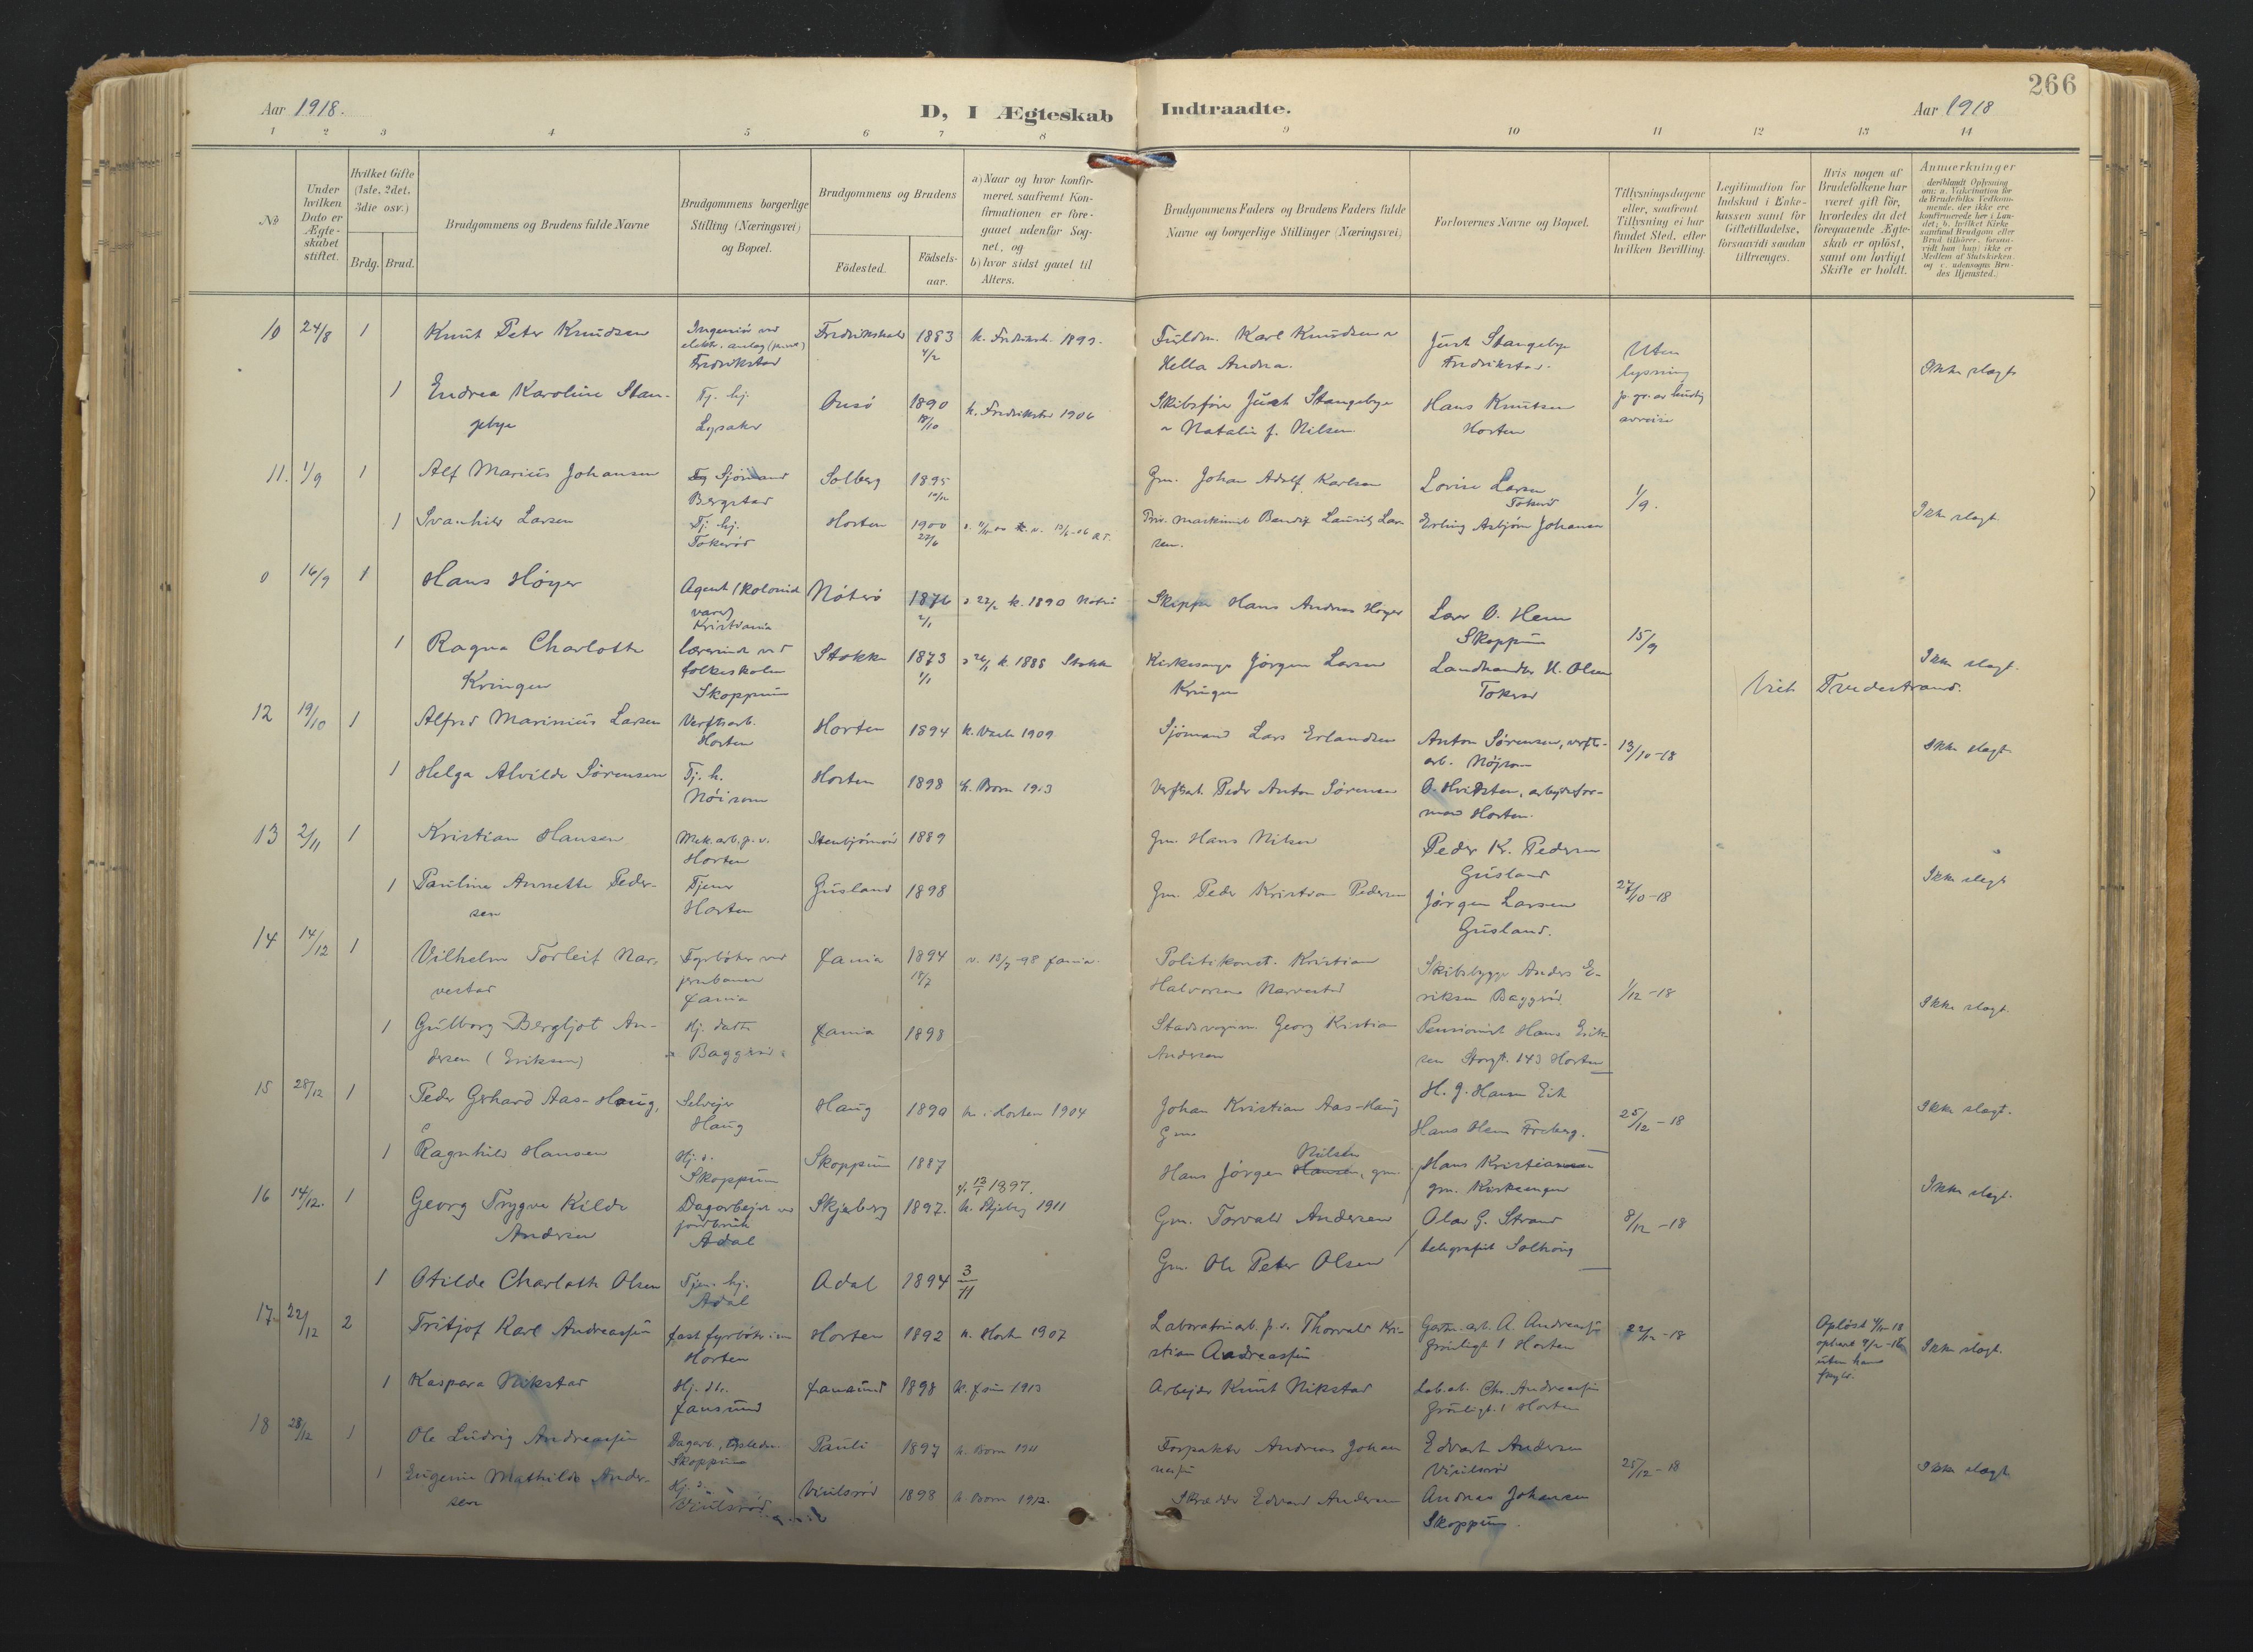 266
Aar 1918.
D, I Ægteskab Indtraadte.
Aar 1918
1 2 3 4 5 6 7 8 9 10 11 12 13 14
No
Under hvilken Dato er Ægteskabet stiftet.
Hvilket Gifte (1ste, 2det, 3die osv.)
Brdg. Brud.
Brudgommens og Brudens fulde Navne
Brudgommens borgerlige Stilling (Næringsvei) og Bopæl.
Brudgommens og Brudens
Fødested.
Fødselsaar.
a) Naar og hvor konfirmeret, saafremt Konfirmationen er foregaaet udenfor Sognet, og
b) hvor sidst gaaet til Alters.
Brudgommens Faders og Brudens Faders fulde Navne og borgerlige Stillinger (Næringsvei)
Forlovernes Navne og Bopæl.
Tillysningsdagene eller, saafremt Tillysning ei har fundet Sted, efter hvilken Bevilling.
Legitimation for Indskud i Enkekassen samt for Giftetilladelse, forsaavidt saadan tiltrænges.
Hvis nogen af Brudefolkene har været gift før, hvorledes da det foregaaende Ægteskab er opløst, samt om lovligt Skifte er holdt.
Anmerkninger
deriblandt Oplysning om: a. Vakcination for de Brudefolks Vedkommende, der ikke ere konfirmerede her i Landet; b. hvilket Kirkesamfund Brudgom eller Brud tilhører, forsaavidt han (hun) ikke er Medlem af Statskirken, og c. udensogns Brudes Hjemsted.
10 24/8 1 Knut Peter Knudsen Ingeniør ved elektr. anlæg Fredrikstad Fredrikshald 1883 4/2 k. Fredriksh. 1897. Fuldm. Karl Knudsen Hella Andrea. Just Stangebye Fredrikstad. Uten lysning Ikke slægt
1 Endrea Karoline Stangebye Tj. hj. Lysaker Onsø 1890 k. Fredrikstad 1906 Skibsfører Just Stangebye Natalie f. Nilsen Hans Knutsen Horten
11. 1/9 1 Alf Marius Johansen Sjömand Bergstad Solberg 1895 10/12 Gm. Johan Adolf Karlsen Lovise Larsen Tokerød 1/9. Ikke slægt
1 Svanhild Larsen Tj. hj. Tokerød Horten 1900 27/6 Lauritz Larsen. Erling Asbjørn Johansen
0 16/9 1 Hans Höyer Agent (kolonialvarer) Kristiania Nøterø 1876 2/1 k. 1890 Nøterø Skipper Hans Andreas Høyer Lars O. Hem Skoppum 15/9
1 Ragna Charlotte Kringen lærerinde ved folkeskolen Skoppum Stokke 1873 1/1 k. 1888 Stokke Kirkesanger Jørgen Larsen Kringen Landhandler H. Olsen Tokerød Ikke slægt. Viet Tvedestrand.
12 19/10 1 Alfred Marinius Larsen Verftsarb. Horten Horten 1894 k. Vaale 1909 Sjømand Lars Erlandsen Anton Sørensen, verftsarb. Nøjsom 13/10-18 Ikke slægt
1 Helga Alvilde Sørensen Tj. h. Nöisom Horten 1898 k. Borre 1913 Verftsarb. Peder Anton Sørensen O. Hvidsten, arbeidsformand Horten.
13 2/11 1 Kristian Hansen Mek. arb. p. v. Horten 1889 Gm. Hans Nilsen Peder Kr. Pedersen Gusland 27/10-18 Ikke slægt
1 Pauline Annette Pedersen Tjener Horten Gusland 1898 Gm. Peder Kristian Pedersen Jørgen Larsen Gusland.
14 14/12 1 Vilhelm Torleif Narvestad Fyrbøter ved jernbanen Xania Xania 1894 18/7 Politikonst. Kristian Halvorsen Narvestad Skibsbygger Anders Eriksen Baggerød 1/12-18 Ikke slægt.
1 Gulborg Bergljot Andersen (Eriksen) Hj. datter Baggerød Xania 1898 Georg Kristian Andersen Pensionist Hans Eriksen Storgt. 143 Horten
15 28/12 1 Peder Gerhard Aas-Haug, Selveier Haug Haug 1890 k. i Horten 1904 Johan Kristian Aas-Haug Gm. H. J. Hansen Eik Hans Hem Freberg. 25/12-18 Ikke slægt.
1 Ragnhild Hansen Hj. d. Skoppum Skoppum 1887 Hans Jørgen Nilsen, gm. Hans Kristiansen gm. Kirkeengen
16 14/12. 1 Georg Trygve Kilde Andersen Dagarbejder ved jordbruk Adal Skjeberg 1897. f. 13/1 1897. k. Skjeberg 1911 Gm. Torvald Andersen Olav G. Strand telegrafist Solhøug 8/12-18 Ikke slægt.
1 Otilde Charlotte Olsen Tjen. hj. Adal Adal 1894 3/11 Gm. Ole Peter Olsen
17. 22/12 2 Fritjof Karl Andreassen fast fyrbøter Horten Horten 1892 k. Horten 1907 Laboratoriearb. p. v. Thorvald Kristian Andreassen A. Andreassen Grønligt. 1 Horten 22/12-18 Opløst Ikke slægt.
1 Kaspara Nikstad Hj. dtr. Xansund Xansund 1898 Arbejder Knut Nikstad Lab. arb. Chr. Andreassen Grønligt. 1 Horten
18 28/12 1 Ole Ludvig Andreassen Dagarb. Skoppum Pauli 1897 k. Borre 1911 Forpakter Andreas Johannessen Edvart Andersen Viulsrød 25/12-18 Ikke slægt.
1 Eugenie Mathilde Andersen Hj. d. Viulsrød Viulsrød 1898 k. Borre 1912. Skrædder Edvard Andersen Andreas Johansen Skoppum.